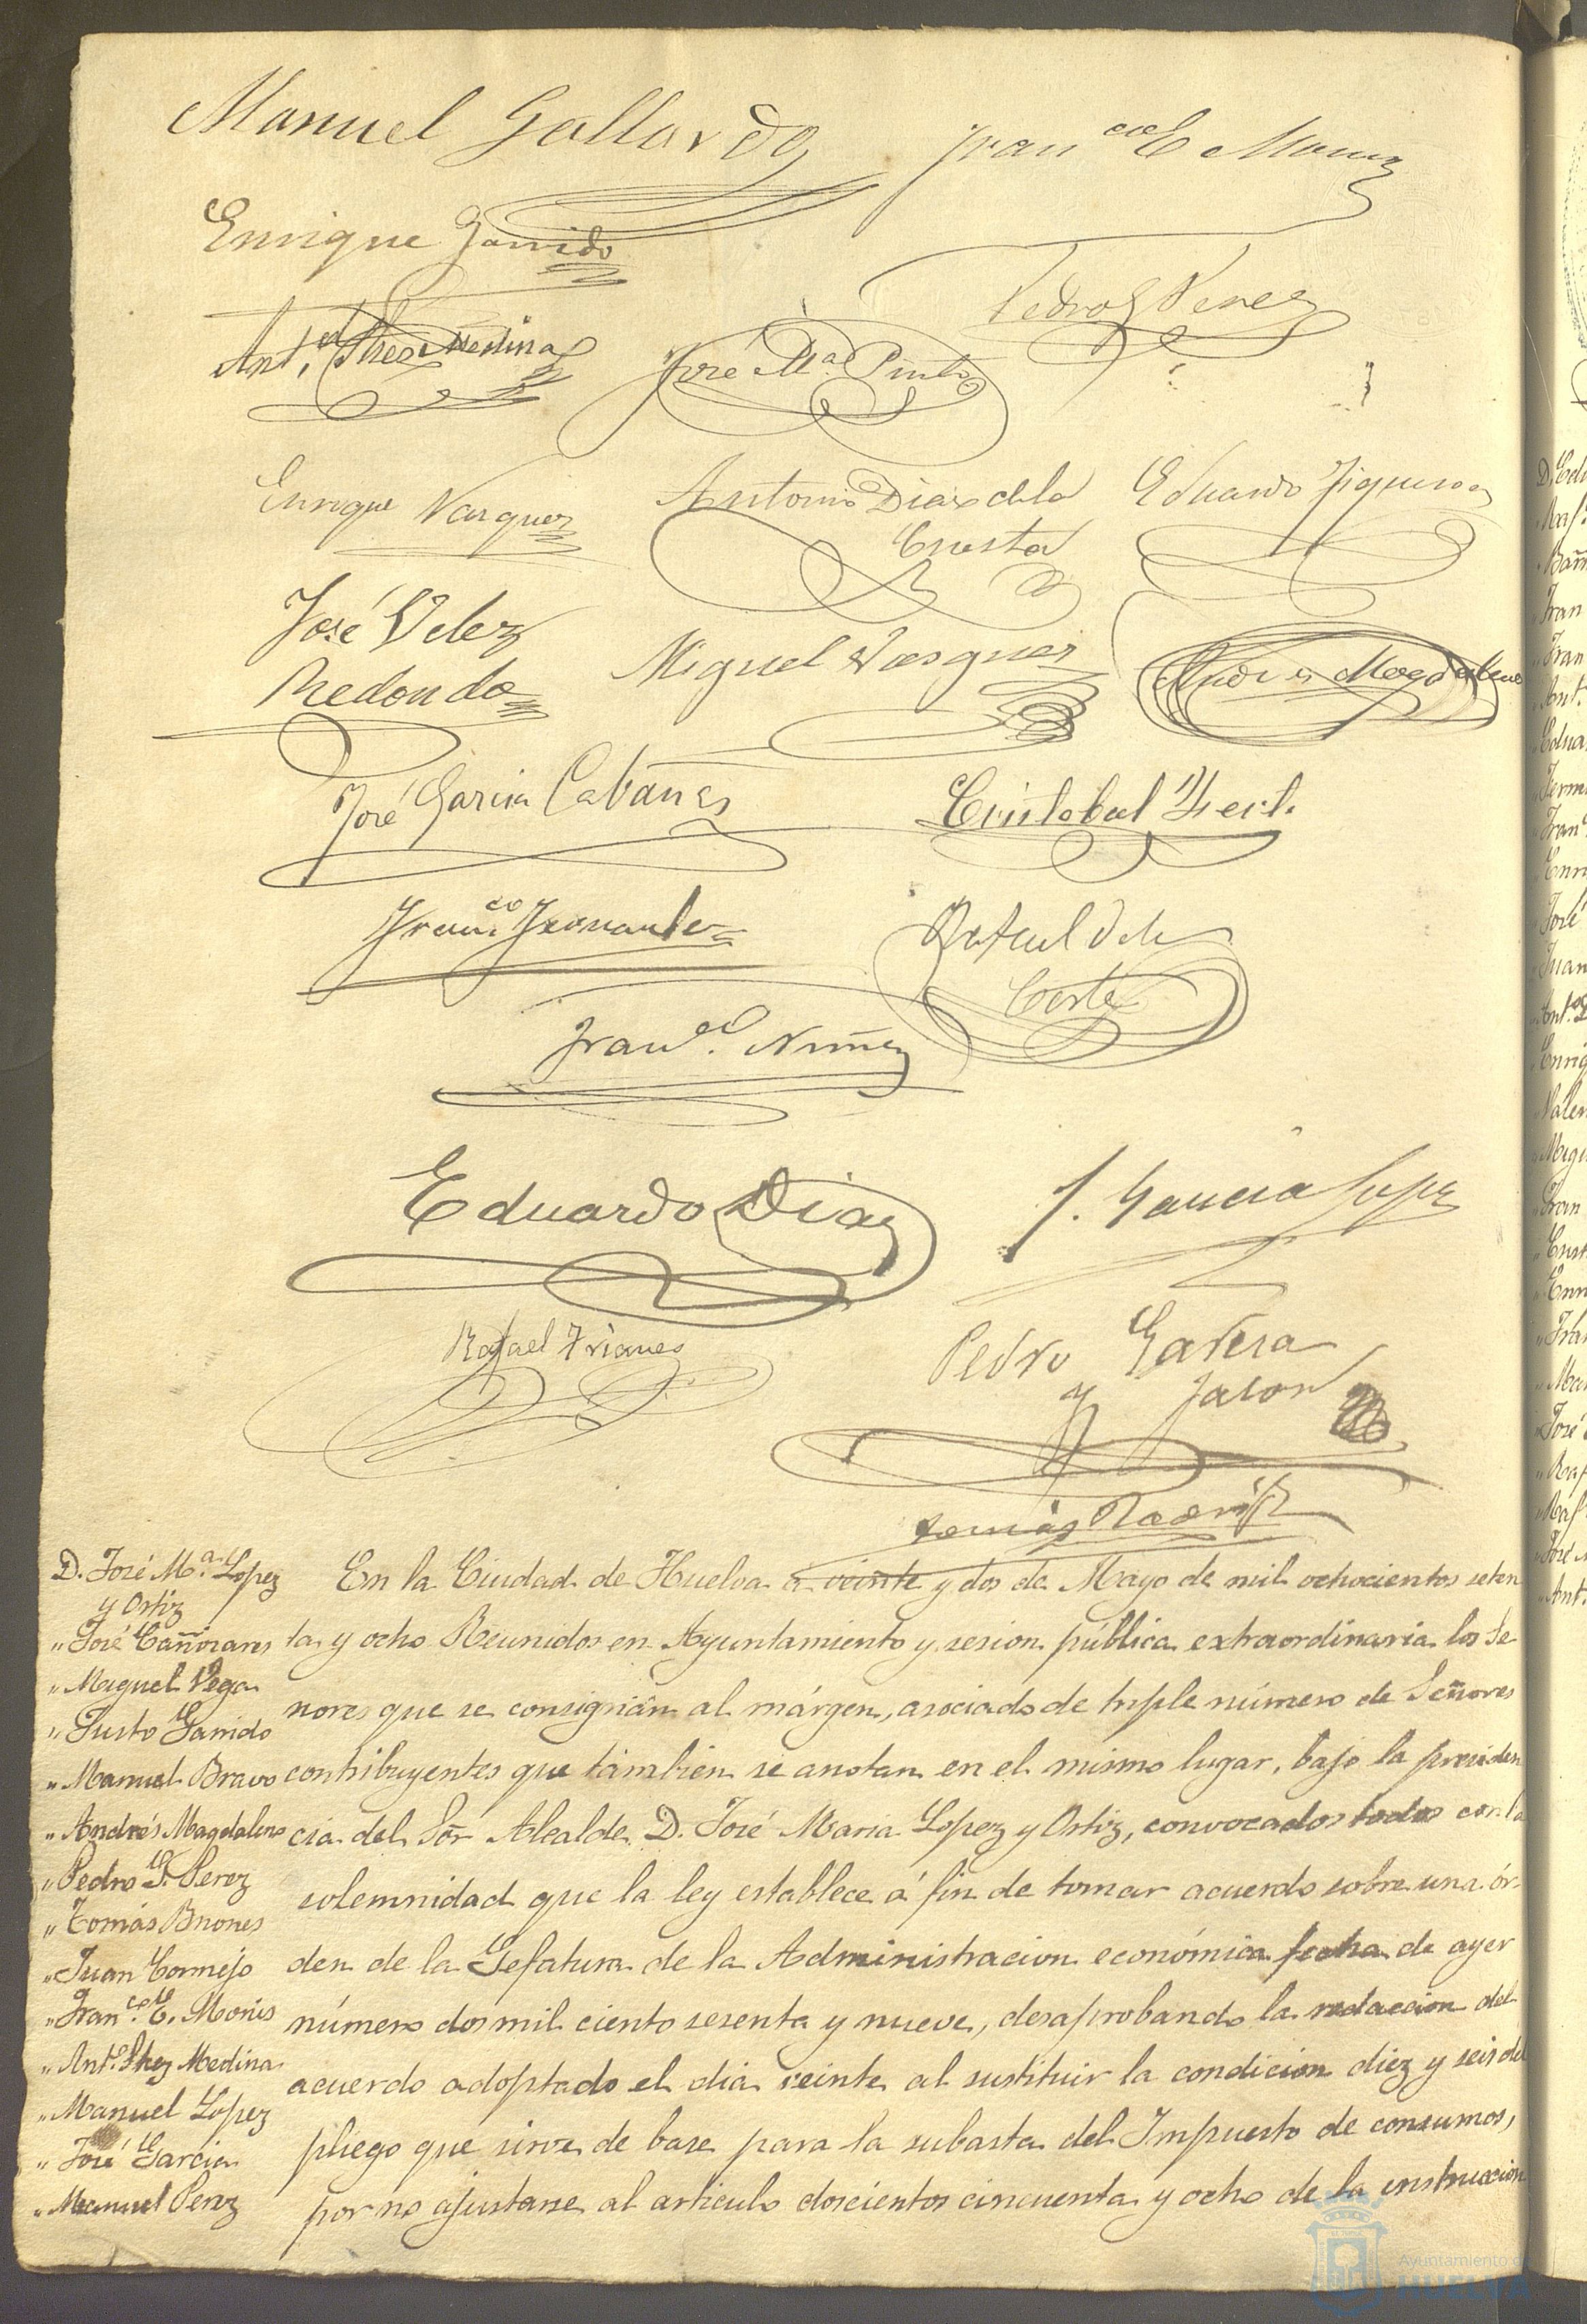 Manuel Gallardo
Fran.co E. Monis
Enrique Garrido
Pedro G Perez
Ant.º Shez Medina
José M.a Pinto
Enrique Vazquez
Antonio Diaz de la
Cuesta
Eduardo Figueroa
José Velez
Redondo
Miguel Vasquez
Andrés Magdaleno
José Garcia Cabañas
Cristobal
Fran.co Fernandez
Rafael de la
Corte
Fran.co Nuñez
Eduardo Diaz
J. Garcia Lopez
Rafael Trianes
Pedro Garera
y Jalon
Tomás
D. José M.a Lopez
y Ortiz
" José Cañizares
" Miguel Vega
" Justo Garrido
" Manuel Bravo
" Andrés Magdaleno
" Pedro G. Perez
" Tomás Briones
" Juan Cornejo
" Fran.co E. Monis
" Ant.º Shez Medina
" Manuel Lopez
" José Garcia
" Manuel Perez
En la Ciudad de Huelva a veinte y dos de Mayo de mil ochocientos seten
ta y ocho Reunidos en Ayuntamiento y sesion pública extraordinaria los Se
nores que se consignan al márgen, asociados de triple número de Señores
contribuyentes que tambien se anotan en el mismo lugar, bajo la presiden
cia del Sor Alcalde D. José Maria Lopez y Ortiz, convocados todos con la
solemnidad que la ley establece á fin de tomar acuerdo sobre una ór-
den de la Gefatura de la Administracion económica fecha de ayer
número dos mil ciento sesenta y nueve, desaprobando la redaccion del
acuerdo adoptado el dia veinte al sustituir la condicion diez y seis del
pliego que sirve de base para la subasta del Impuesto de consumos,
por no ajustarse al articulo doscientos cincuenta y ocho de la instruccion
Ayuntamiento de
HUELVA